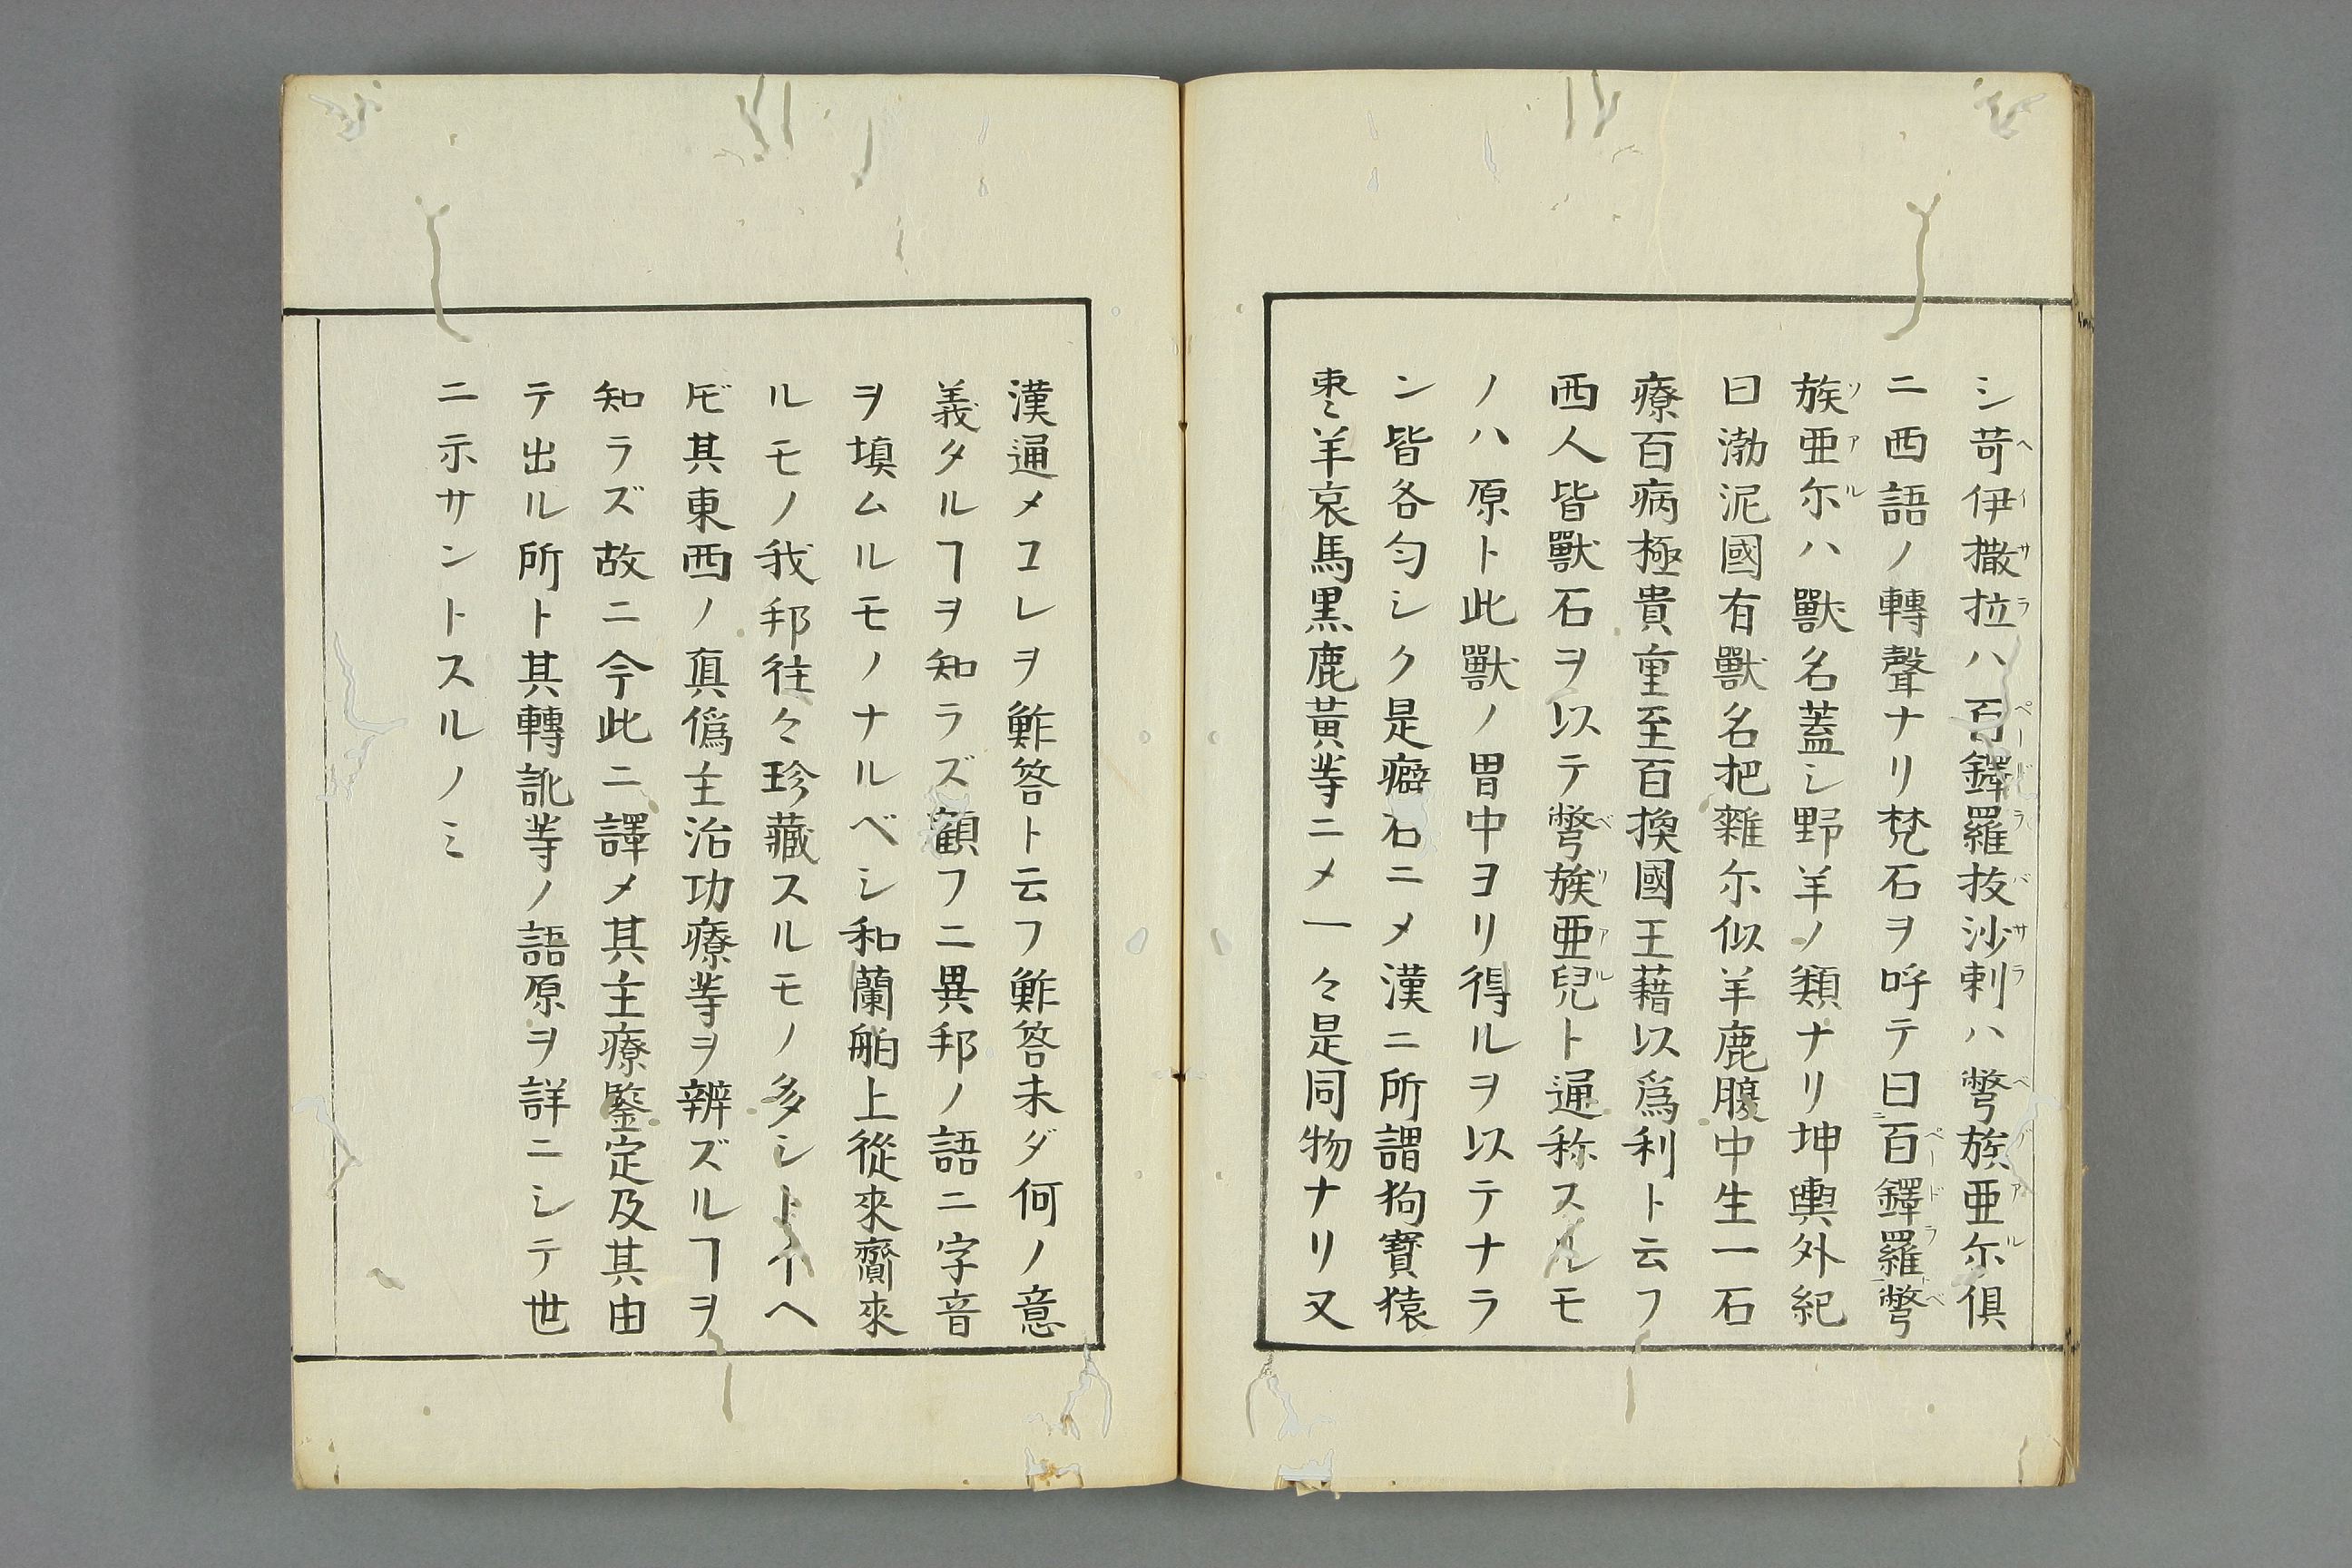 シ苛伊撒拉ハ百鐸羅抜沙剌ハ彆族亜尓倶
ニ西語ノ轉聲ナリ梵石ヲ呼テ曰百鐸羅彆
族亜尓ハ獸名蓋シ野羊ノ類ナリ坤輿外紀
曰渤泥國有獸名把雜尓似羊鹿腹中生一石
療百病極貴重至百換國王藉以爲利ト云フ
西人皆獸石ヲ以テ彆族亜兒ト通称スルモ
ノハ原ト此獸ノ胃中ヨリ得ルヲ以テナラ
ン皆各匀シク是癖石ニメ漢ニ所謂狗寳猿
棗羊哀馬黒鹿黄等ニメ一々是同物ナリ又
漢通メコレヲ鮓答ト云フ鮓答未ダ何ノ意
義タルヿヲ知ラズ顧フニ異邦ノ語ニ字音
ヲ填ムルモノナルベシ和蘭舶上從來齎來
ルモノ我邦往々珍藏スルモノ多シトイヘ
𪜈其東西ノ真偽主治功療等ヲ辨ズルヿヲ
知ラズ故ニ今此ニ譯メ其主療鑒定及其由
テ出ル所ト其轉訛等ノ語原ヲ詳ニシテ世
ニ示サントスルノミ